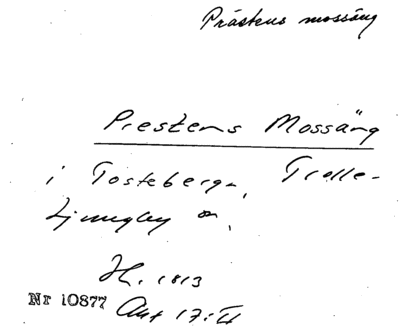 Prästens mossäng
Prestens Mossäng
i Tosteberga, Trolle-
Ljungby sn,
H. 1813
Nr 10877 Akt 17: